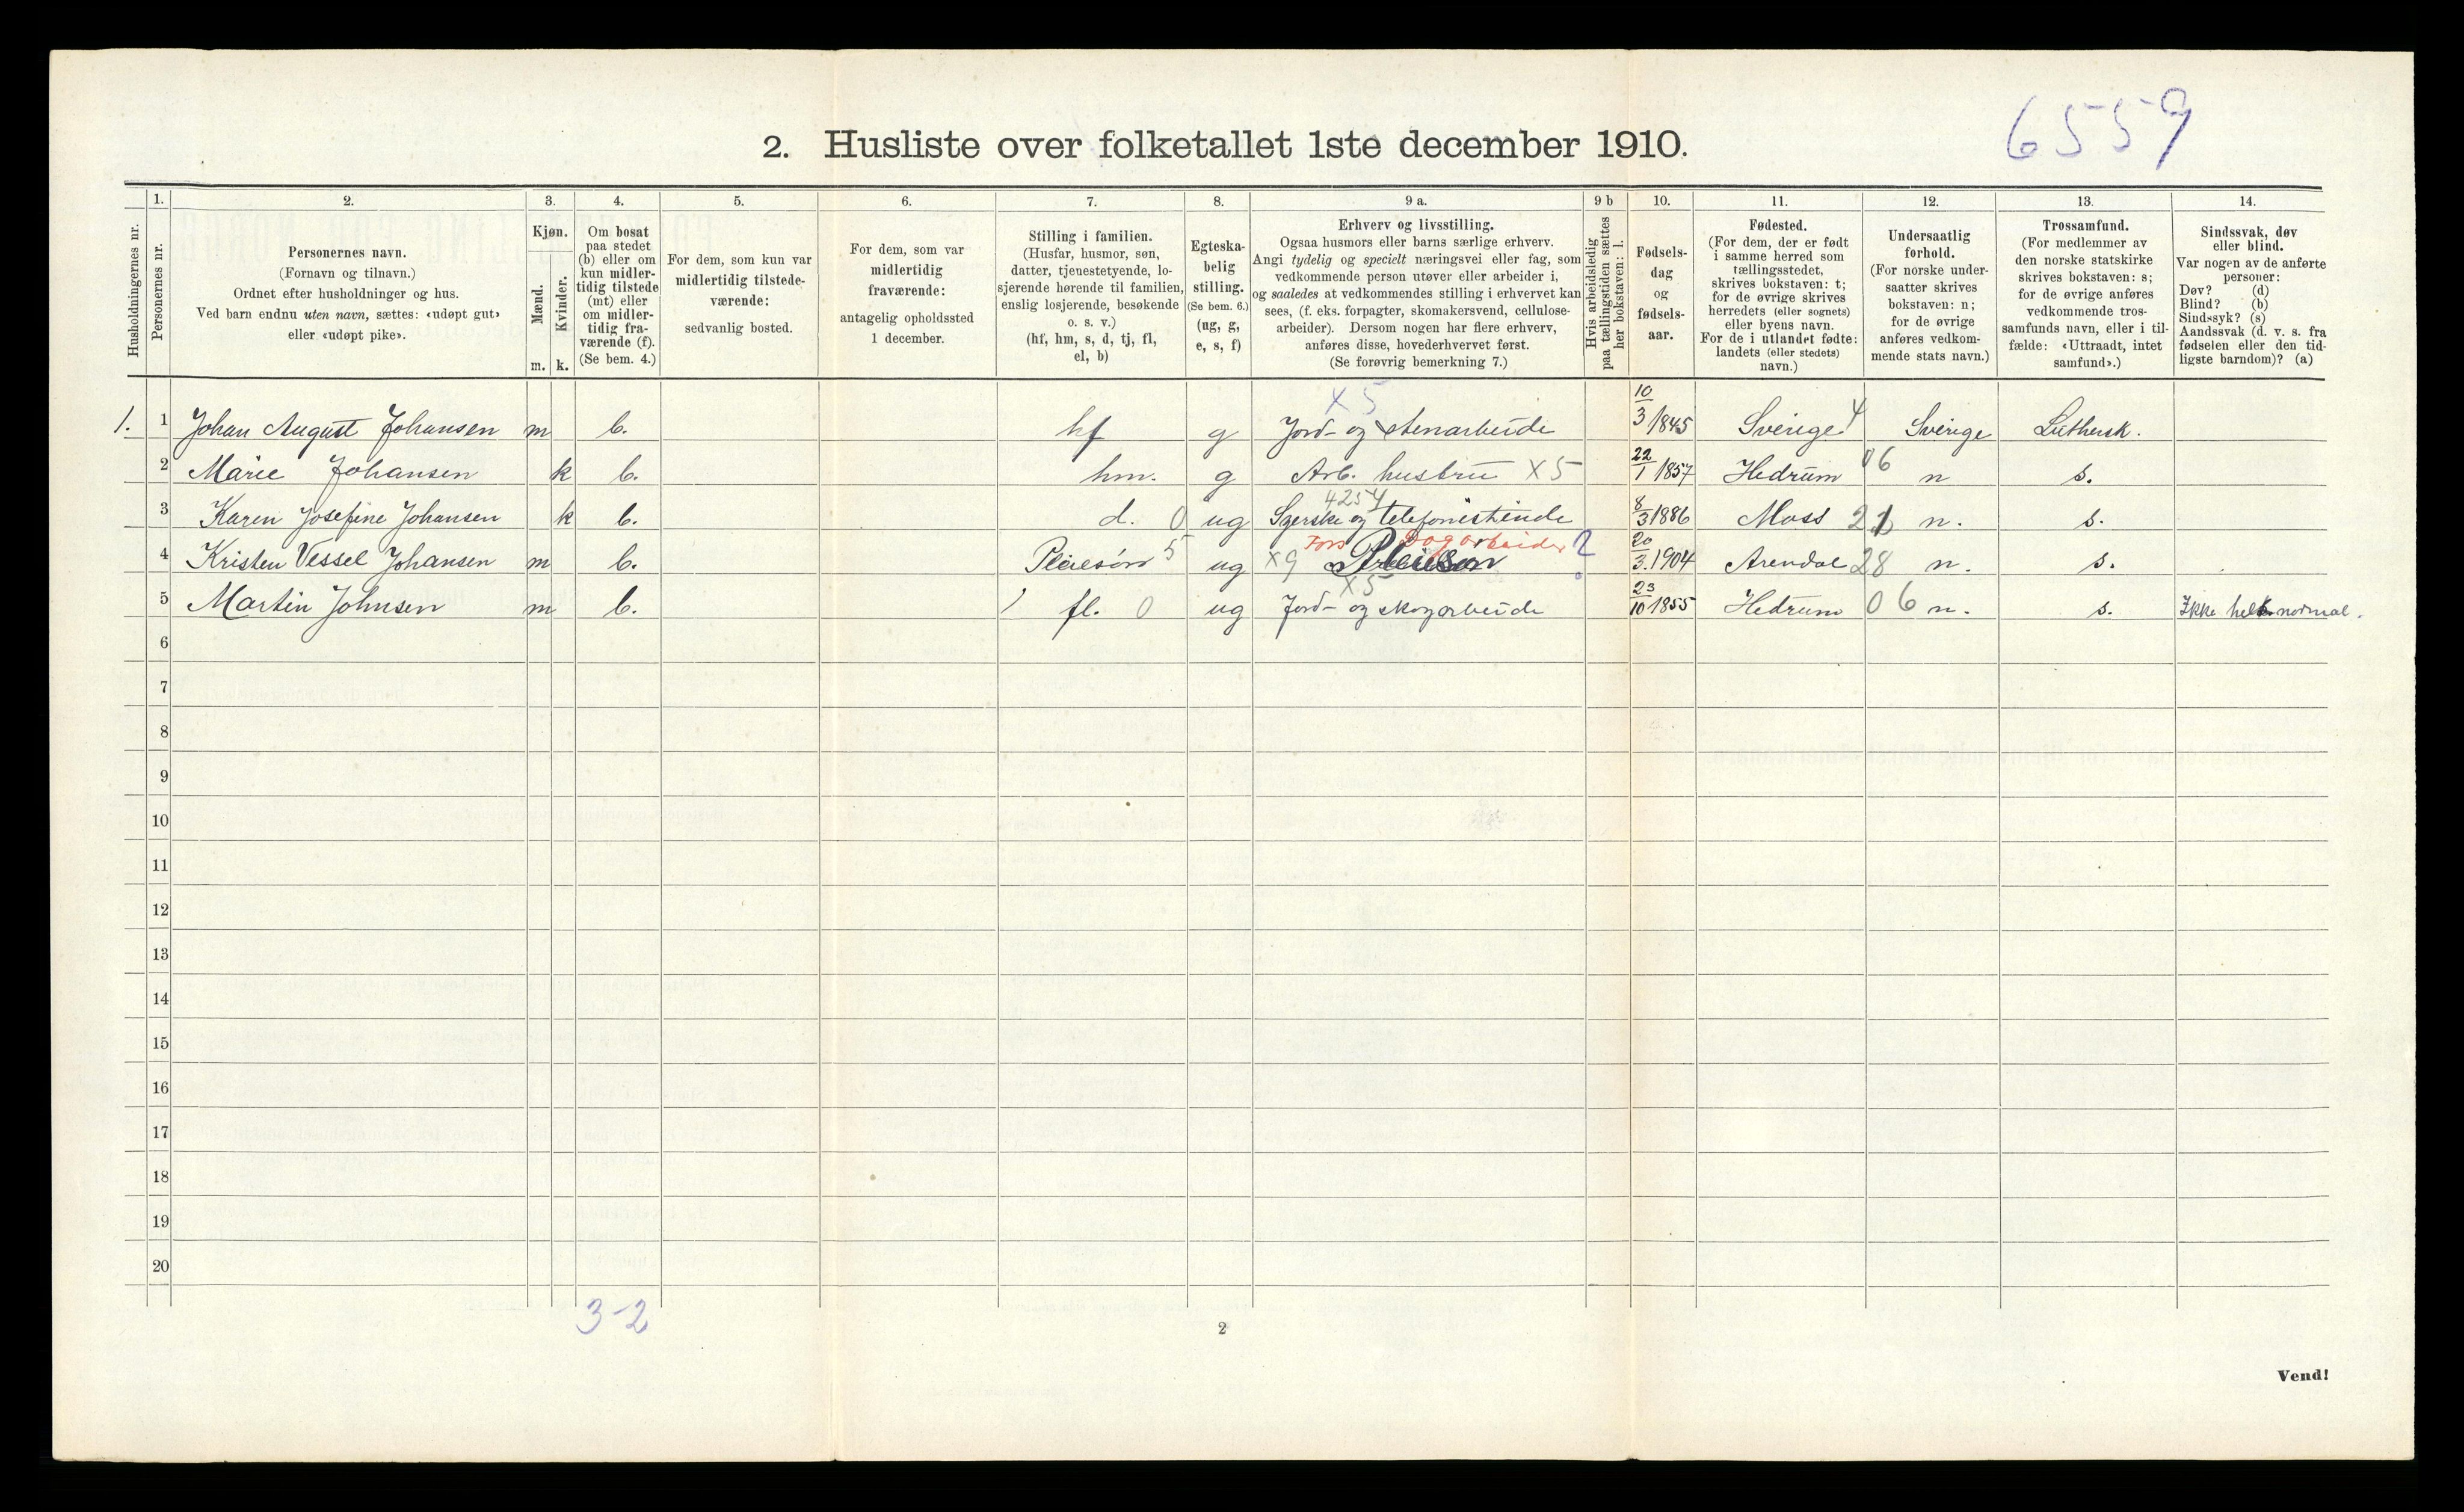 6559
2. Husliste over folketallet 1ste december 1910.
Husholdningernes nr.
1.
Personernes nr.
2.
Personernes navn.
(Fornavn og tilnavn.)
Ordnet efter husholdninger og hus.
Ved barn endnu uten navn, sættes: «udøpt gut»
eller «udøpt pike».
3.
Kjøn.
Mænd.
Kvinder.
m. k.
4.
Om bosat
paa stedet
(b) eller om
kun midler-
tidig tilstede
(mt) eller
om midler-
tidig fra-
værende (f).
(Se bem. 4.)
5.
For dem, som kun var
midlertidig tilstede-
værende:
sedvanlig bosted.
6.
For dem, som var
midlertidig
fraværende:
antagelig opholdssted
1 december.
7.
Stilling i familien.
(Husfar, husmor, søn,
datter, tjenestetyende, lo-
sjerende hørende til familien,
enslig losjerende, besøkende
o. s. v.)
(hf, hm, s, d, tj, fl,
el, b)
8.
Egteska-
belig
stilling.
(Se bem. 6.)
(ug, g,
e, s, f)
9 a.
Erhverv og livsstilling.
Ogsaa husmors eller barns særlige erhverv.
Angi tydelig og specielt næringsvei eller fag, som
vedkommende person utøver eller arbeider i,
og saaledes at vedkommendes stilling i erhvervet kan
sees, (f. eks. forpagter, skomakersvend, cellulose-
arbeider). Dersom nogen har flere erhverv,
anføres disse, hovederhvervet først.
(Se forøvrig bemerkning 7.)
9 b
Hvis arbeidsledig
paa tællingstiden sættes
her bokstaven: l.
10.
Fødsels-
dag
og
fødsels-
aar.
11.
Fødested.
(For dem, der er født
i samme herred som
tællingsstedet,
skrives bokstaven: t;
for de øvrige skrives
herredets (eller sognets)
eller byens navn.
For de i utlandet fødte:
landets (eller stedets)
navn.)
12.
Undersaatlig
forhold.
(For norske under-
saatter skrives
bokstaven: n;
for de øvrige
anføres vedkom-
mende stats navn.)
13.
Trossamfund.
(For medlemmer av
den norske statskirke
skrives bokstaven: s;
for de øvrige anføres
vedkommende tros-
samfunds navn, eller i til-
fælde: «Uttraadt, intet
samfund».)
14.
Sindssvak, døv
eller blind.
Var nogen av de anførte
personer:
Døv? (d)
Blind? (b)
Sindssyk? (s)
Aandssvak (d. v. s. fra
fødselen eller den tid-
ligste barndom)? (a)
1. 1 Johan August Johansen m b. hf g X 5 Jord- og stenarbeide 10/3 1845 Sverige 4 Sverige Luthersk.
2 Marie Johansen k b. hm. g Arb. hustru X 5 22/1 1857 Hedrum 06 n s.
3 Karen Josefine Johansen k b. d. 0 ug 4254 Syerske og telefonistinde 8/3 1886 Moss n. s.
4 Kristen Vessel Johansen m b. Pleiesøn 5 ug X9 Fors ? 20/3. 1904 Arendal 28 n. s.
5 Martin Johnsen m b. fl. 0 ug X5 Jord- og skogarbeide 23/10 1855 Hedrum 06 n. s. Ikke helt normal.
6
7
8
9
10
11
12
13
14
15
16
17
18
19
20
3-2
2
Vend!